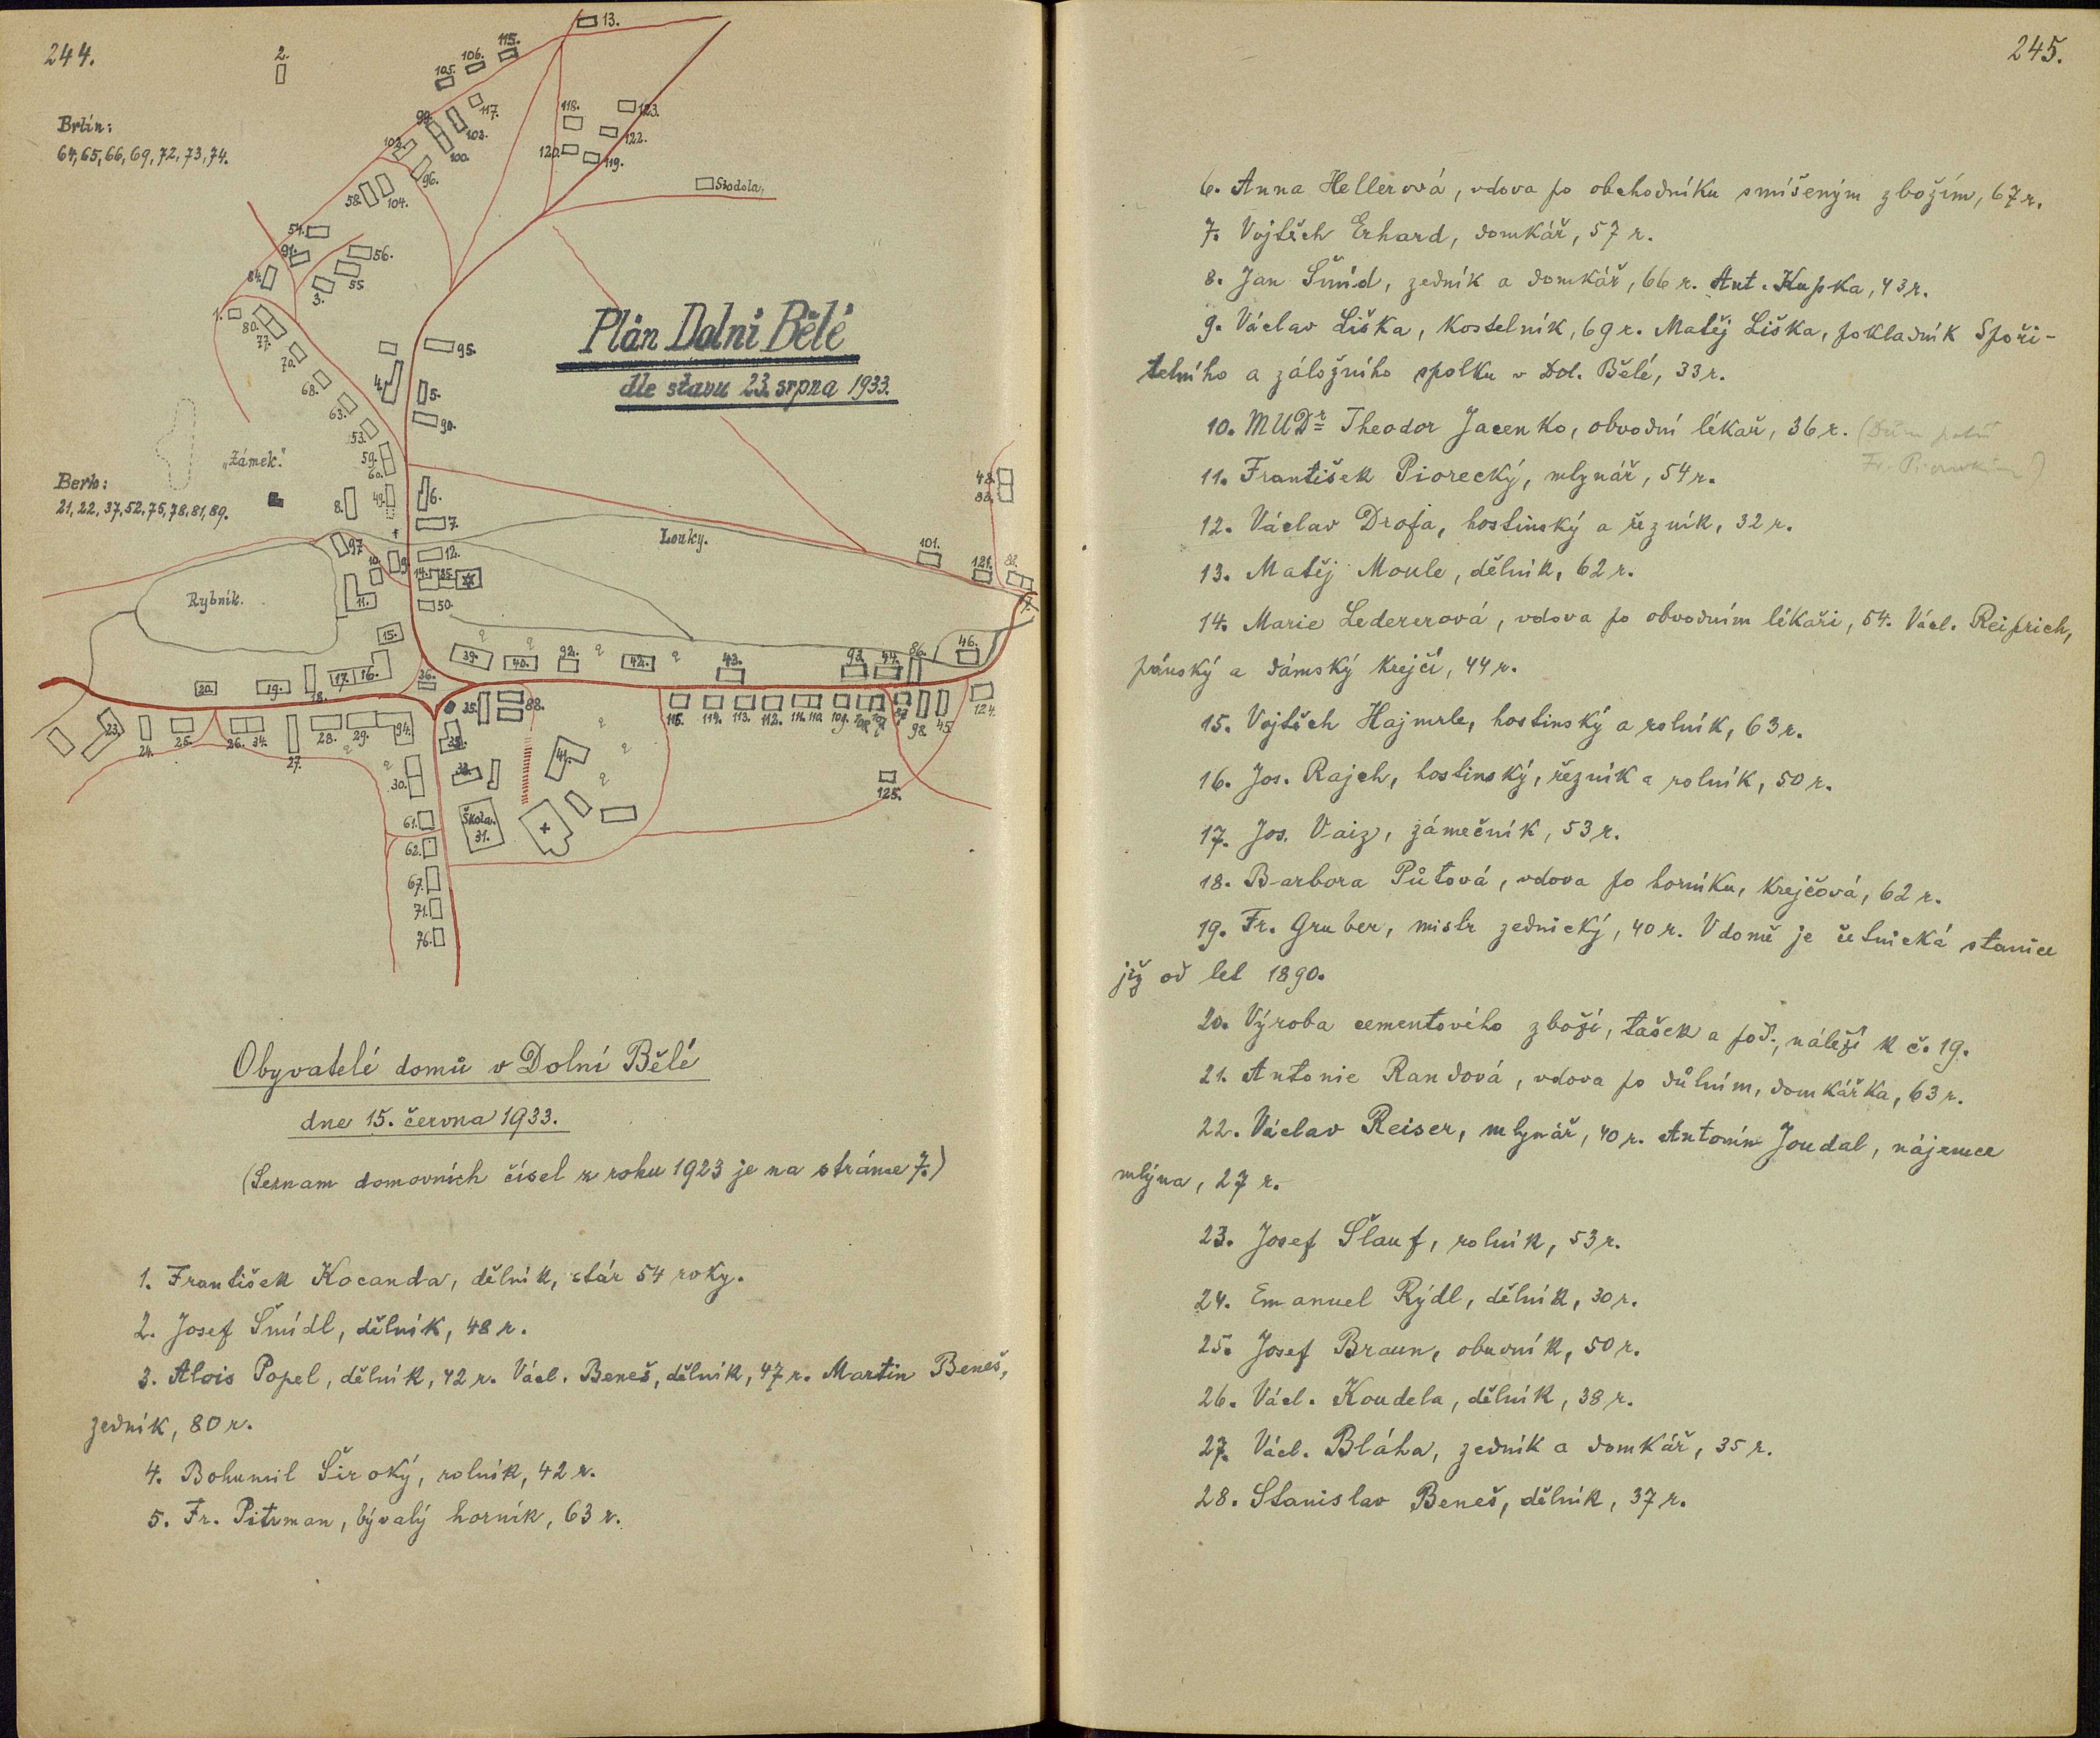 244.
2.
13.
115.
106.
105.
117.
99.
103.
102.
100.
96.
58.
104.
118.
123.
122.
120.
119.
Stodola.
Brlín:
64, 65, 66, 69, 72, 73, 74.
54.
91.
56.
84.
55.
3.
1.
80.
77.
70.
68.
63.
53.
59.
60.
49.
4.
5.
90.
95.
Plán Dolní Bělé
dle stavu 23. srpna 1933.
„Zámek."
Berk:
21, 22, 37, 52, 75, 78, 81, 89.
8.
6.
7.
48.
Louky.
101.
121.
97.
10.
9.
12.
14.
85.
11.
50.
Rybník.
15.
39.
40.
92.
42.
43.
93.
44.
86.
46.
20.
19.
18.
17.
16.
36.
35.
88.
116.
114.
113.
112.
111.
110.
109.
98.
45.
124.
23.
24.
25.
26.
34.
27.
28.
29.
94.
30.
41.
125.
61.
Škola.
31.
62.
67.
71.
76.
Obyvatelé domů v Dolní Bělé
dne 15. června 1933.
(Seznam domovních čísel z roku 1923 je na stránce 7.)
1. František Kocanda, dělník, stár 54 roky.
2. Josef Šmídl, dělník, 48 r.
3. Alois Popel, dělník, 42 r. Václ. Beneš, dělník, 47 r. Martin Beneš,
zedník, 80 r.
4. Bohumil Široký, rolník, 42 r.
5. Fr. Pitrman, bývalý horník, 63 r.
245.
6. Anna Hellerová, vdova po obchodníku smíšeným zbožím, 67 r.
7. Vojtěch Erhard, domkář, 57 r.
8. Jan Šmíd, zedník a domkář, 66 r. Ant. Kupka, 43 r.
9. Václav Liška, kostelník, 69 r. Matěj Liška, pokladník Spoři-
telního a záložního spolku v Dol. Bělé, 33 r.
10. MUDr Theodor Jacenko, obvodní lékař, 36 r. (Dům patří
Fr.
11. František Piorecký, mlynář, 54 r.
12. Václav Drofa, hostinský a řezník, 32 r.
13. Matěj Moule, dělník, 62 r.
14. Marie Ledererová, vdova po obvodním lékaři, 54. Václ. Reiprich,
pánský a dámský krejčí, 44 r.
15. Vojtěch Hajmrle, hostinský a rolník, 63 r.
16. Jos. Rajch, hostinský, řezník a rolník, 50 r.
17. Jos. Vaiz, zámečník, 53 r.
18. Barbora Půtová, vdova po horníku, krejčová, 62 r.
19. Fr. Gruber, mistr zednický, 40 r. V domě je četnická stanice
již od let 1890.
20. Výroba cementového zboží, tašek a pod., náleží k č. 19.
21. Antonie Randová, vdova po důlním, domkářka, 63 r.
22. Václav Reiser, mlynář, 40 r. Antonín Joudal, nájemce
mlýna, 27 r.
23. Josef Šlauf, rolník, 53 r.
24. Emanuel Rýdl, dělník, 30 r.
25. Josef Braun, obuvník, 50 r.
26. Václ. Koudela, dělník, 38 r.
27. Václ. Bláha, zedník a domkář, 35 r.
28. Stanislav Beneš, dělník, 37 r.